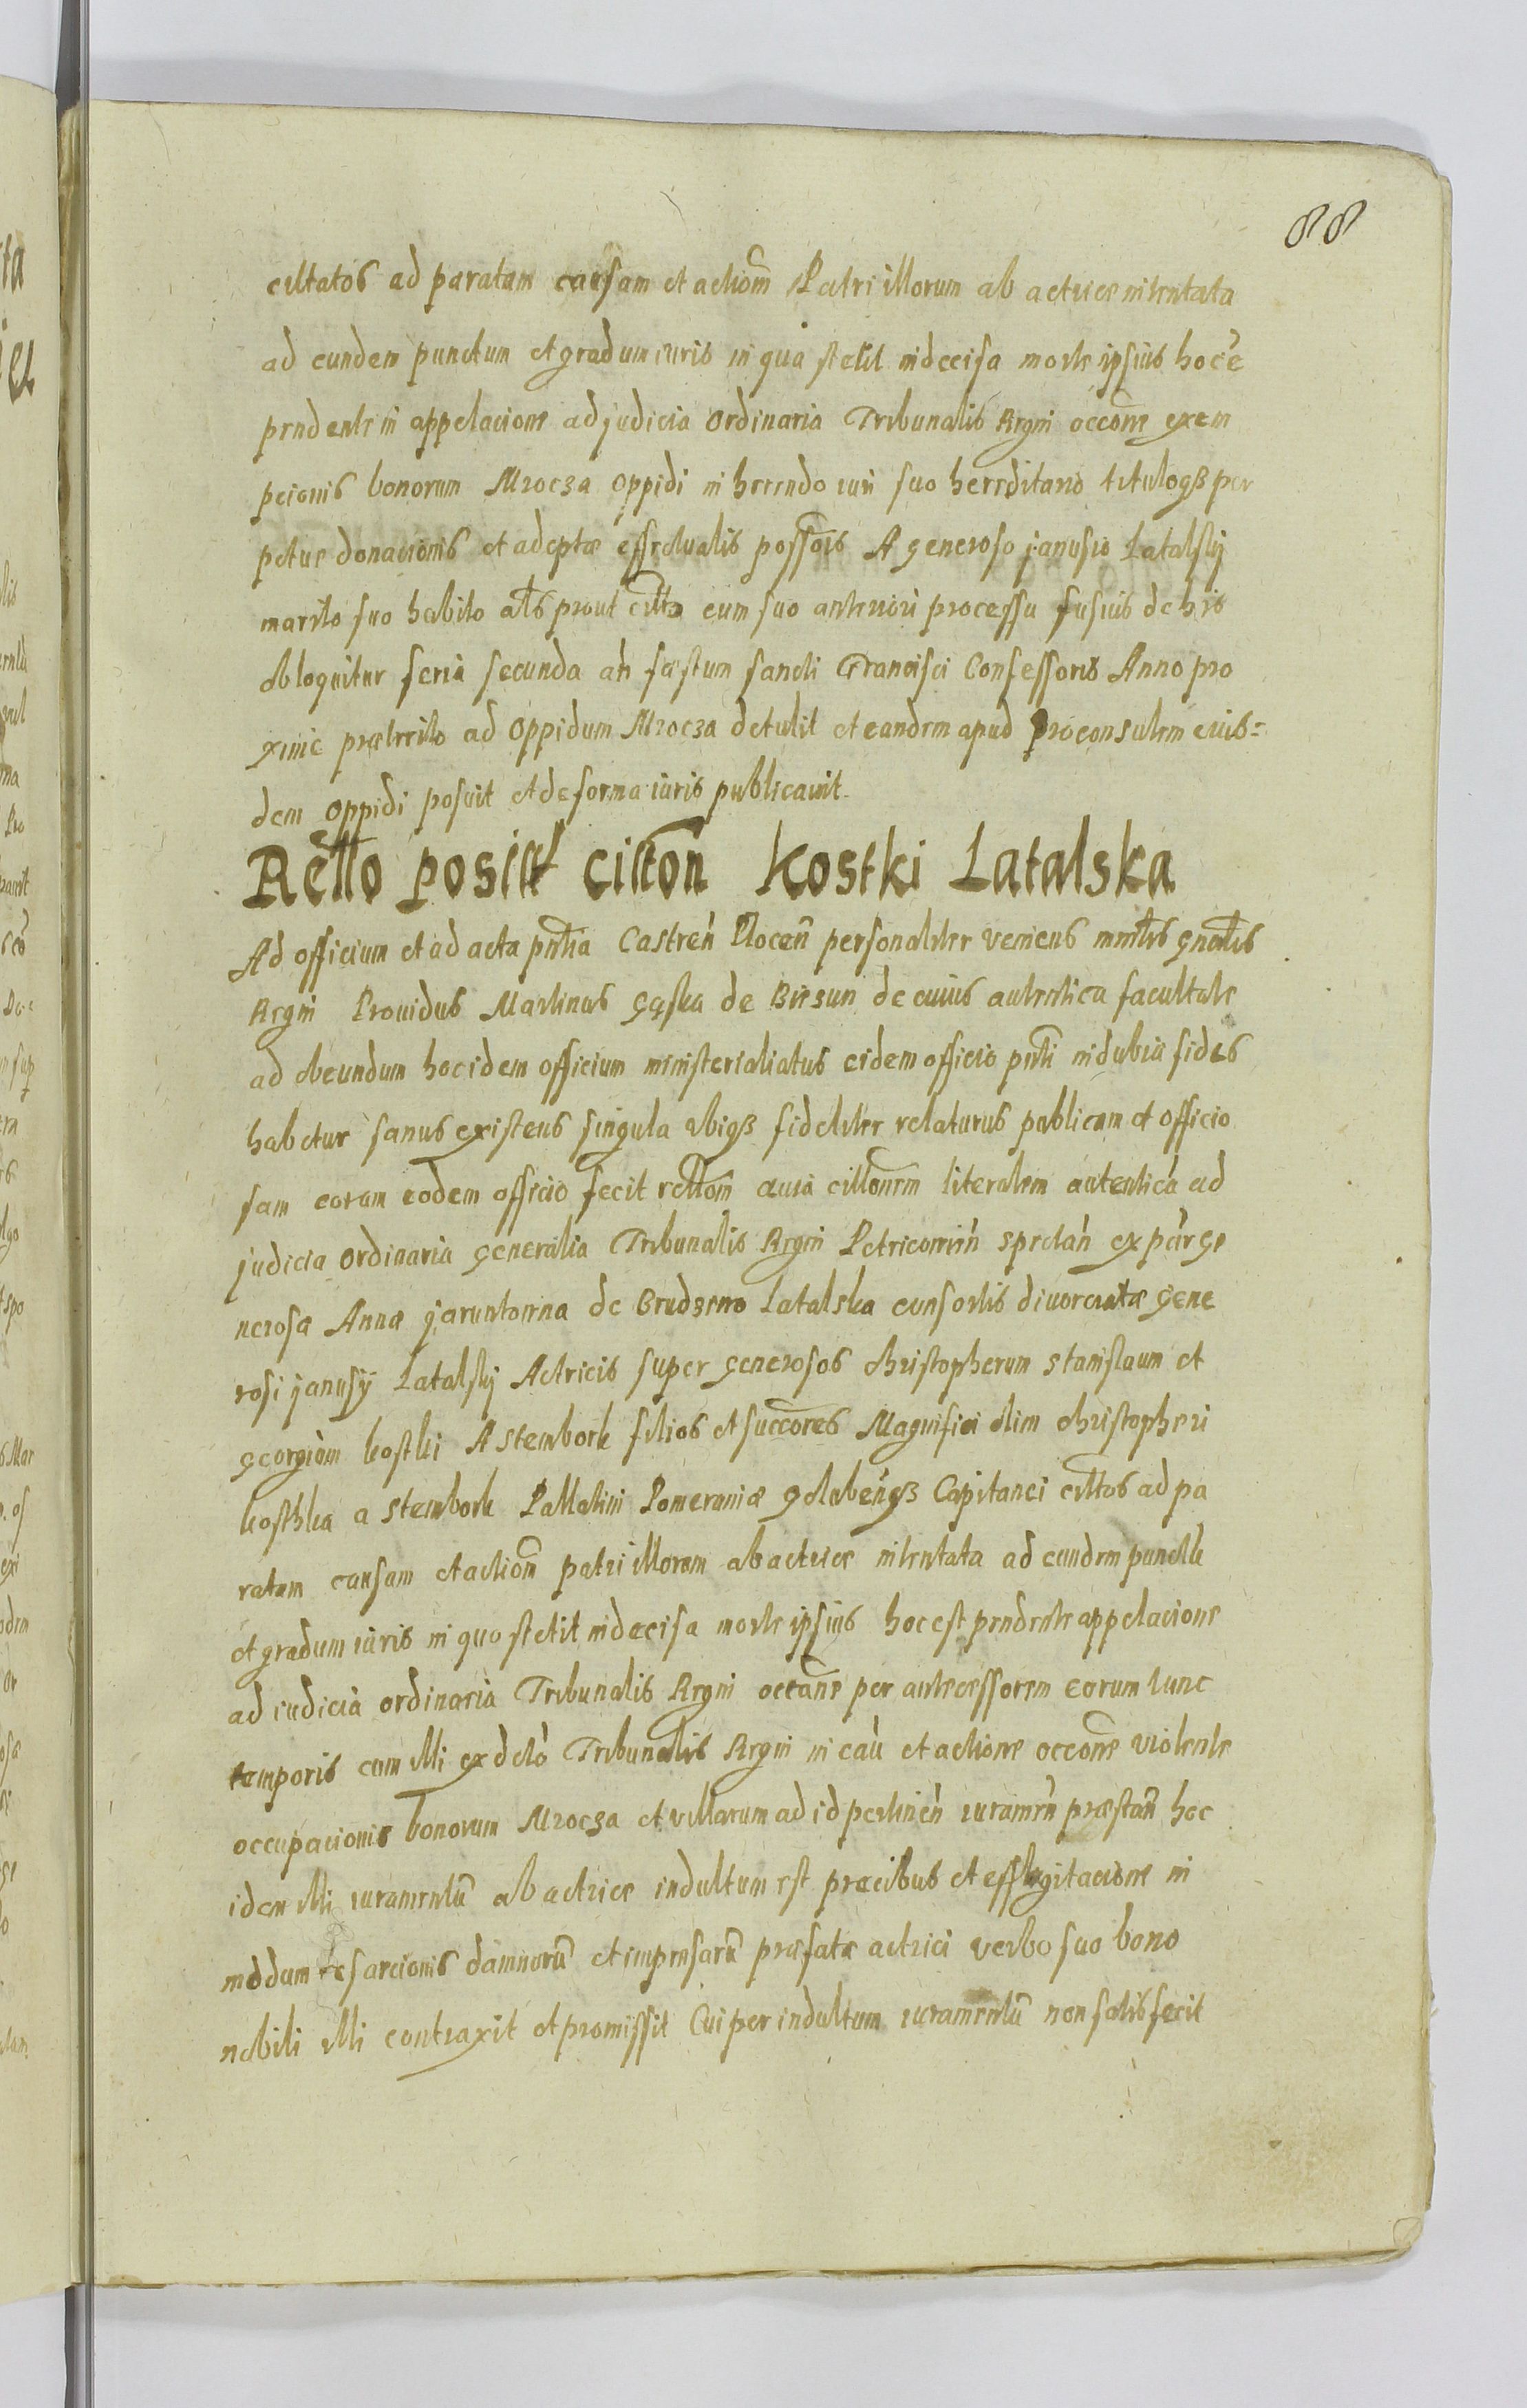 88
cittatos ad paratam causam et actiom̃ Patri illorum ab actrice intentata
ad eundem punctum et gradum iuris in qua stetit indecisa morte ipsius hoc ẽ
pendente in appelacione ad judicia ordinaria Tribunalis Regni occõne exem
pcionis bonorum Mrocza oppidi inherendo iuri suo hereditario tituloqȝ per
petue donacionis et adeptæ effectualis possõis A generoso janusio Latalskj
marito suo habito al̃s prout citt̃o cum suo anteriori processu fusius de his
obloquitur feria secunda añ fæstum sancti Francisci Confessoris Anno pro
xime præterito ad oppidum Mrocza detulit et eandem apud proconsulem eius=
dem oppidi posuit et de forma iuris publicauit
Rel̃lo posit cittoñ Kostki Latalska
Ad officium et ad acta pñtia Castreñ Plocen̄ personaliter veniens minlis gnalis
Regni Prouidus Martinus gąska de Biezun de cuius autentica facultate
ad obeundum hoc idem officium ministerialiatus eidem officio pñti indubia fides
habetur sanus existens singula vbiqȝ fideliter relaturus publicam et officio
sam coram eodem officio fecit rel̃lom̃ quia citt̃onem literalem autentica ad
judicia ordinaria generalia Tribunalis Regni Petricouień spectań ex par ge
nerosæ Annæ jaruntowna de Brudzewo Latalska consortis diuorciatæ gene
rosi janusÿ Latalskj Actricis super generosos christopherum stanislaum et
georgium kostki A stembork filios et succõres Magnifici olim christopheri
kosthka a stembork Pallatini Pomeraniæ golubeń qȝ Capitanei cittos ad pa
ratam causam et actiom̃ patri illorum ab actrice intentata ad eundem punctũ
et gradum iuris in quo stetit indecisa morte ipsius hoc est pendente appelacione
ad iudicia ordinaria Tribunalis Regni occãne per antecessorem eorum tunc
temporis cum illi ex dcto Tribunalis Regni in cau et actione occõne violente
occupacionis bonorum Mrocza et villarum ad id pertineń iuramen̄ præstan̄ hoc
idem illi iuramentũ ab actrice indultum est præcibus et efflagitacione in
modum resarcionis damnorũ et impensarũ præfatæ actrici verbo suo bono
nobili illi contraxit et promissit Cui per indultum iuramentũ non satisfecit